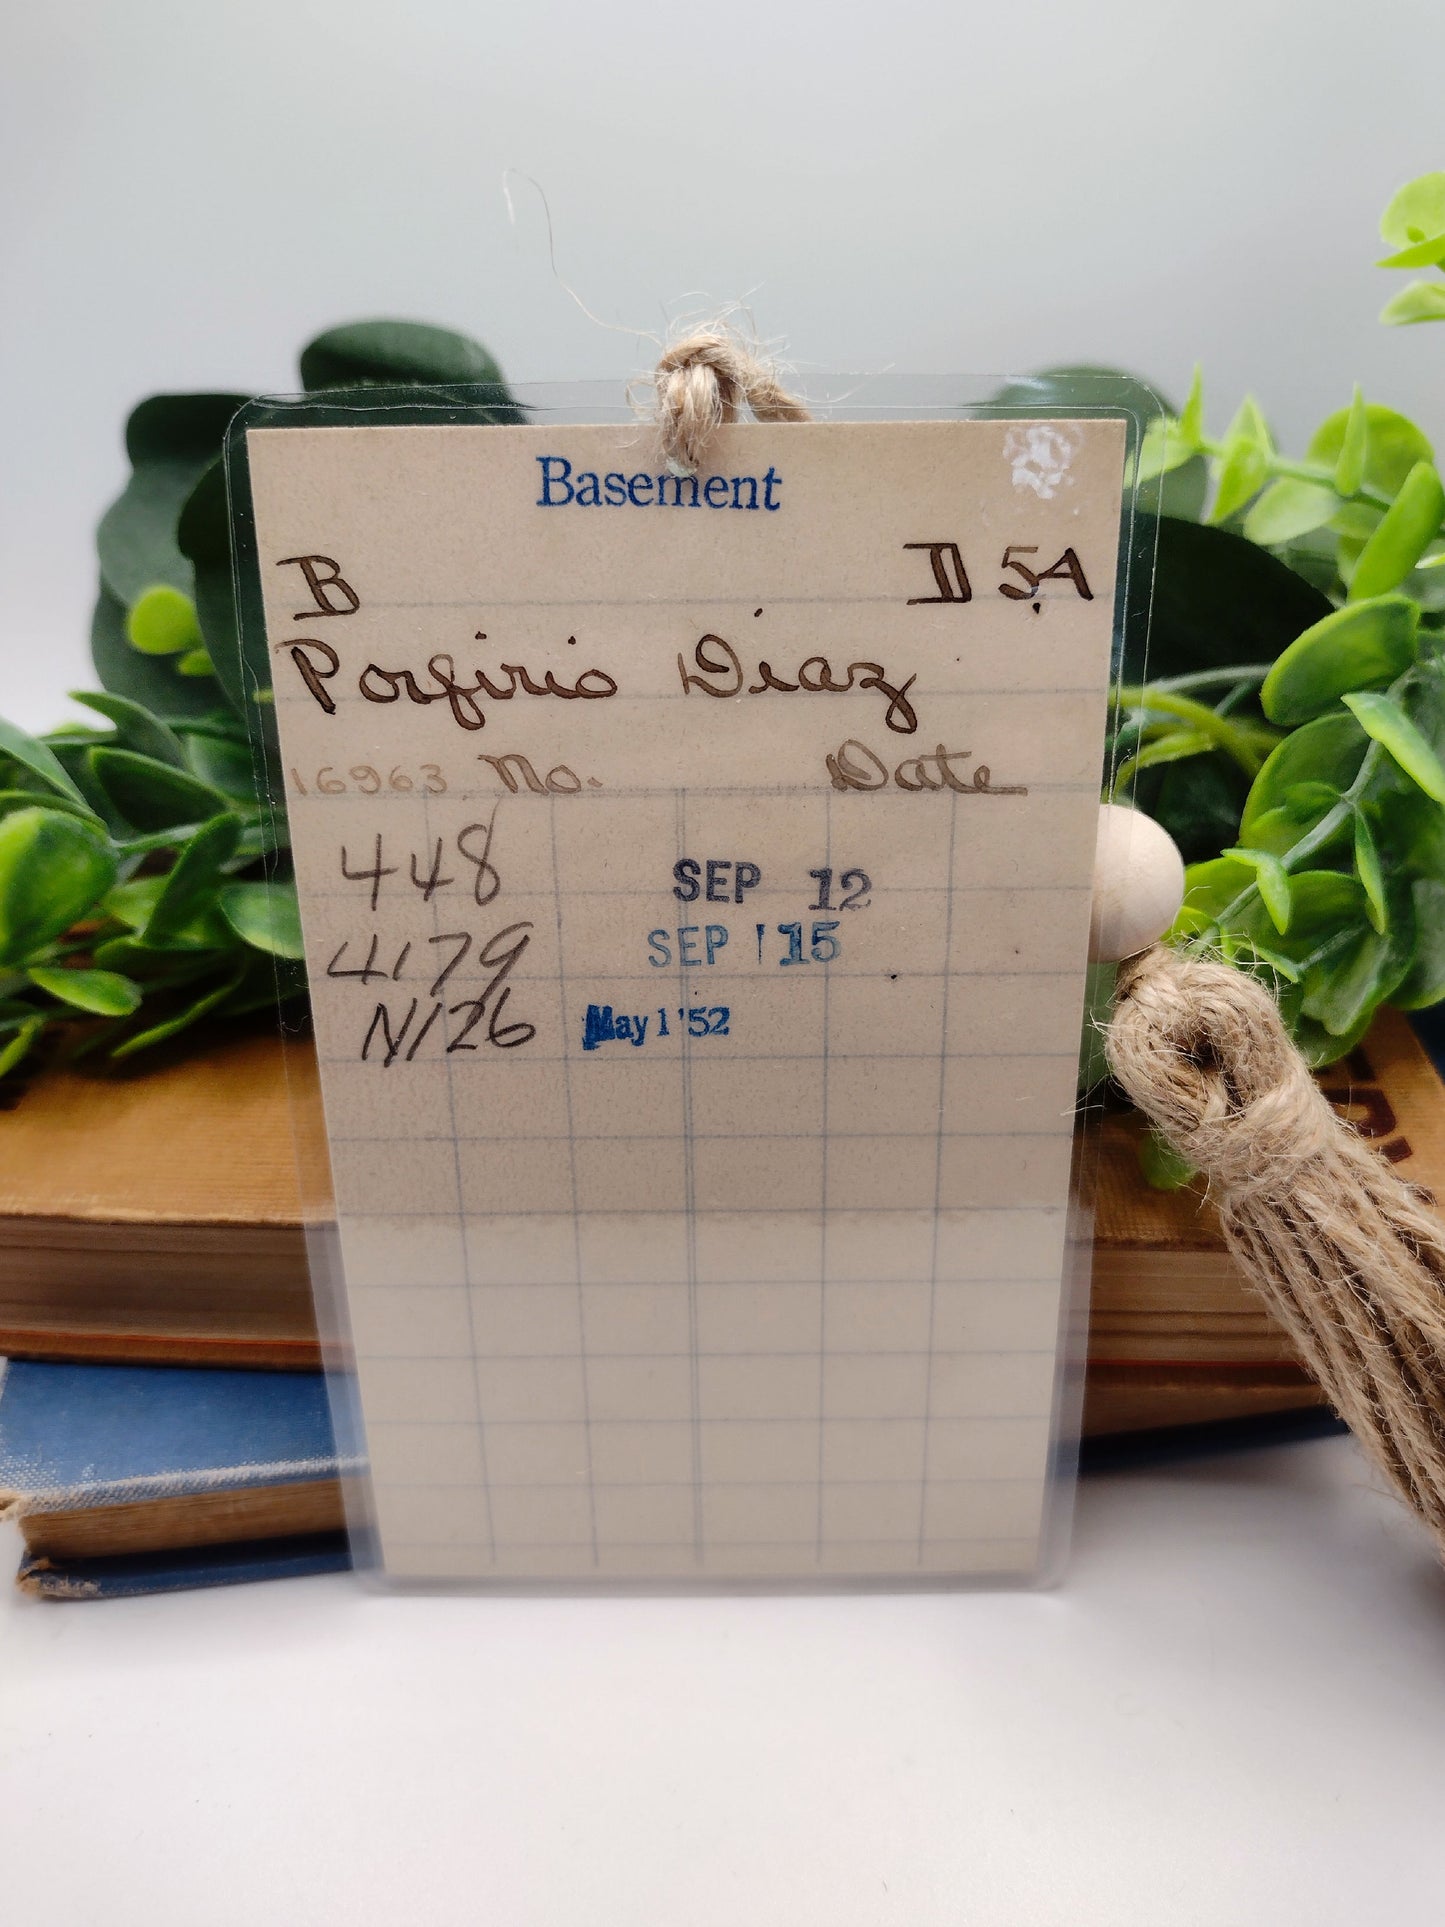 Basement
B D5A
Porfirio Diaz
16963 No. Date
448 SEP 12
4179 SEP 15
N126 May 1 '52